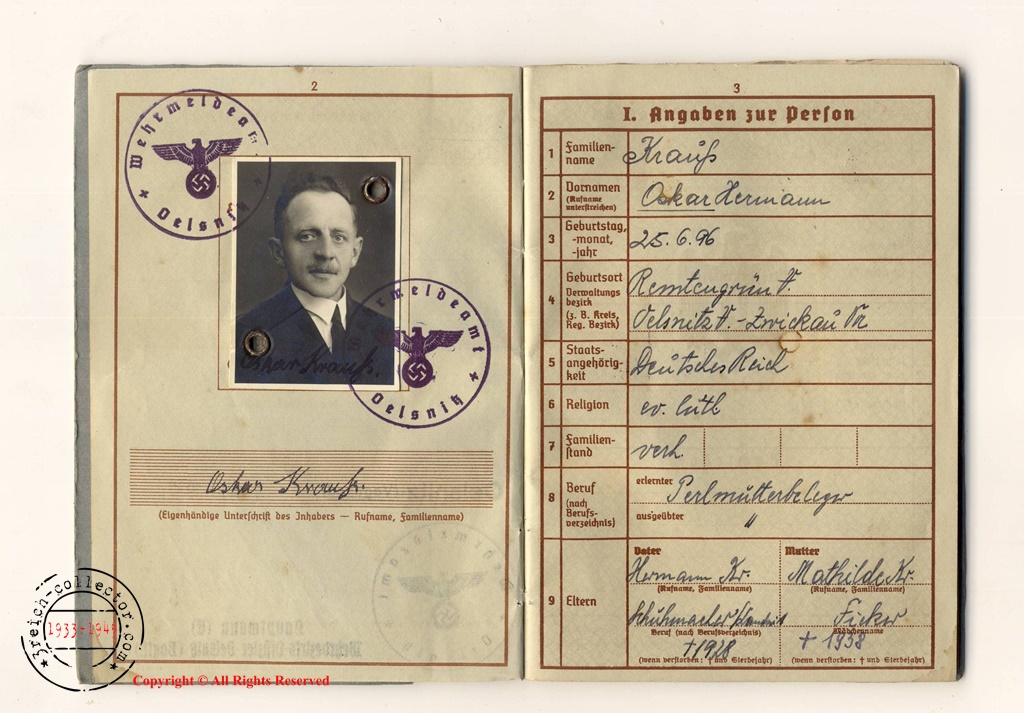 2
Wehrmeldea
Oelsnitz
Oskar Krauß.
Wehrmeldeamt
Oelsnitz
Oskar Krauß.
(Eigenhändige Unterschrift des Inhabers — Rufname, Familienname)
3reich-collector.com
1933-1945
Copyright © All Rights Reserved
3
I. Angaben zur Person
1 Familien-
name
Krauß
2 Vornamen
(Rufname
unterstreichen)
Oskar Hermann
3 Geburtstag,
-monat,
-jahr
25.6.96
4 Geburtsort
Verwaltungs
bezirk
(z. B. Kreis,
Reg. Bezirk)
Remtengrün V.
Oelsnitz V. - Zwickau
5 Staats-
angehörig-
keit
Deutsches Reich
6 Religion
ev. luth
7 Familien-
stand
verh.
8 Beruf
(nach
Berufs-
verzeichnis)
erlernter
Perlmutterbeleger
ausgeübter
"
9 Eltern
Vater
Hermann Kr.
(Rufname, Familienname)
Schuhmacher
Beruf (nach Berufsverzeichnis)
† 1928
(wenn verstorben: † und Sterbejahr)
Mutter
Mathilde Kr.
(Rufname, Familienname)
Ficker
Mädchenname
† 1938
(wenn verstorben: † und Sterbejahr)